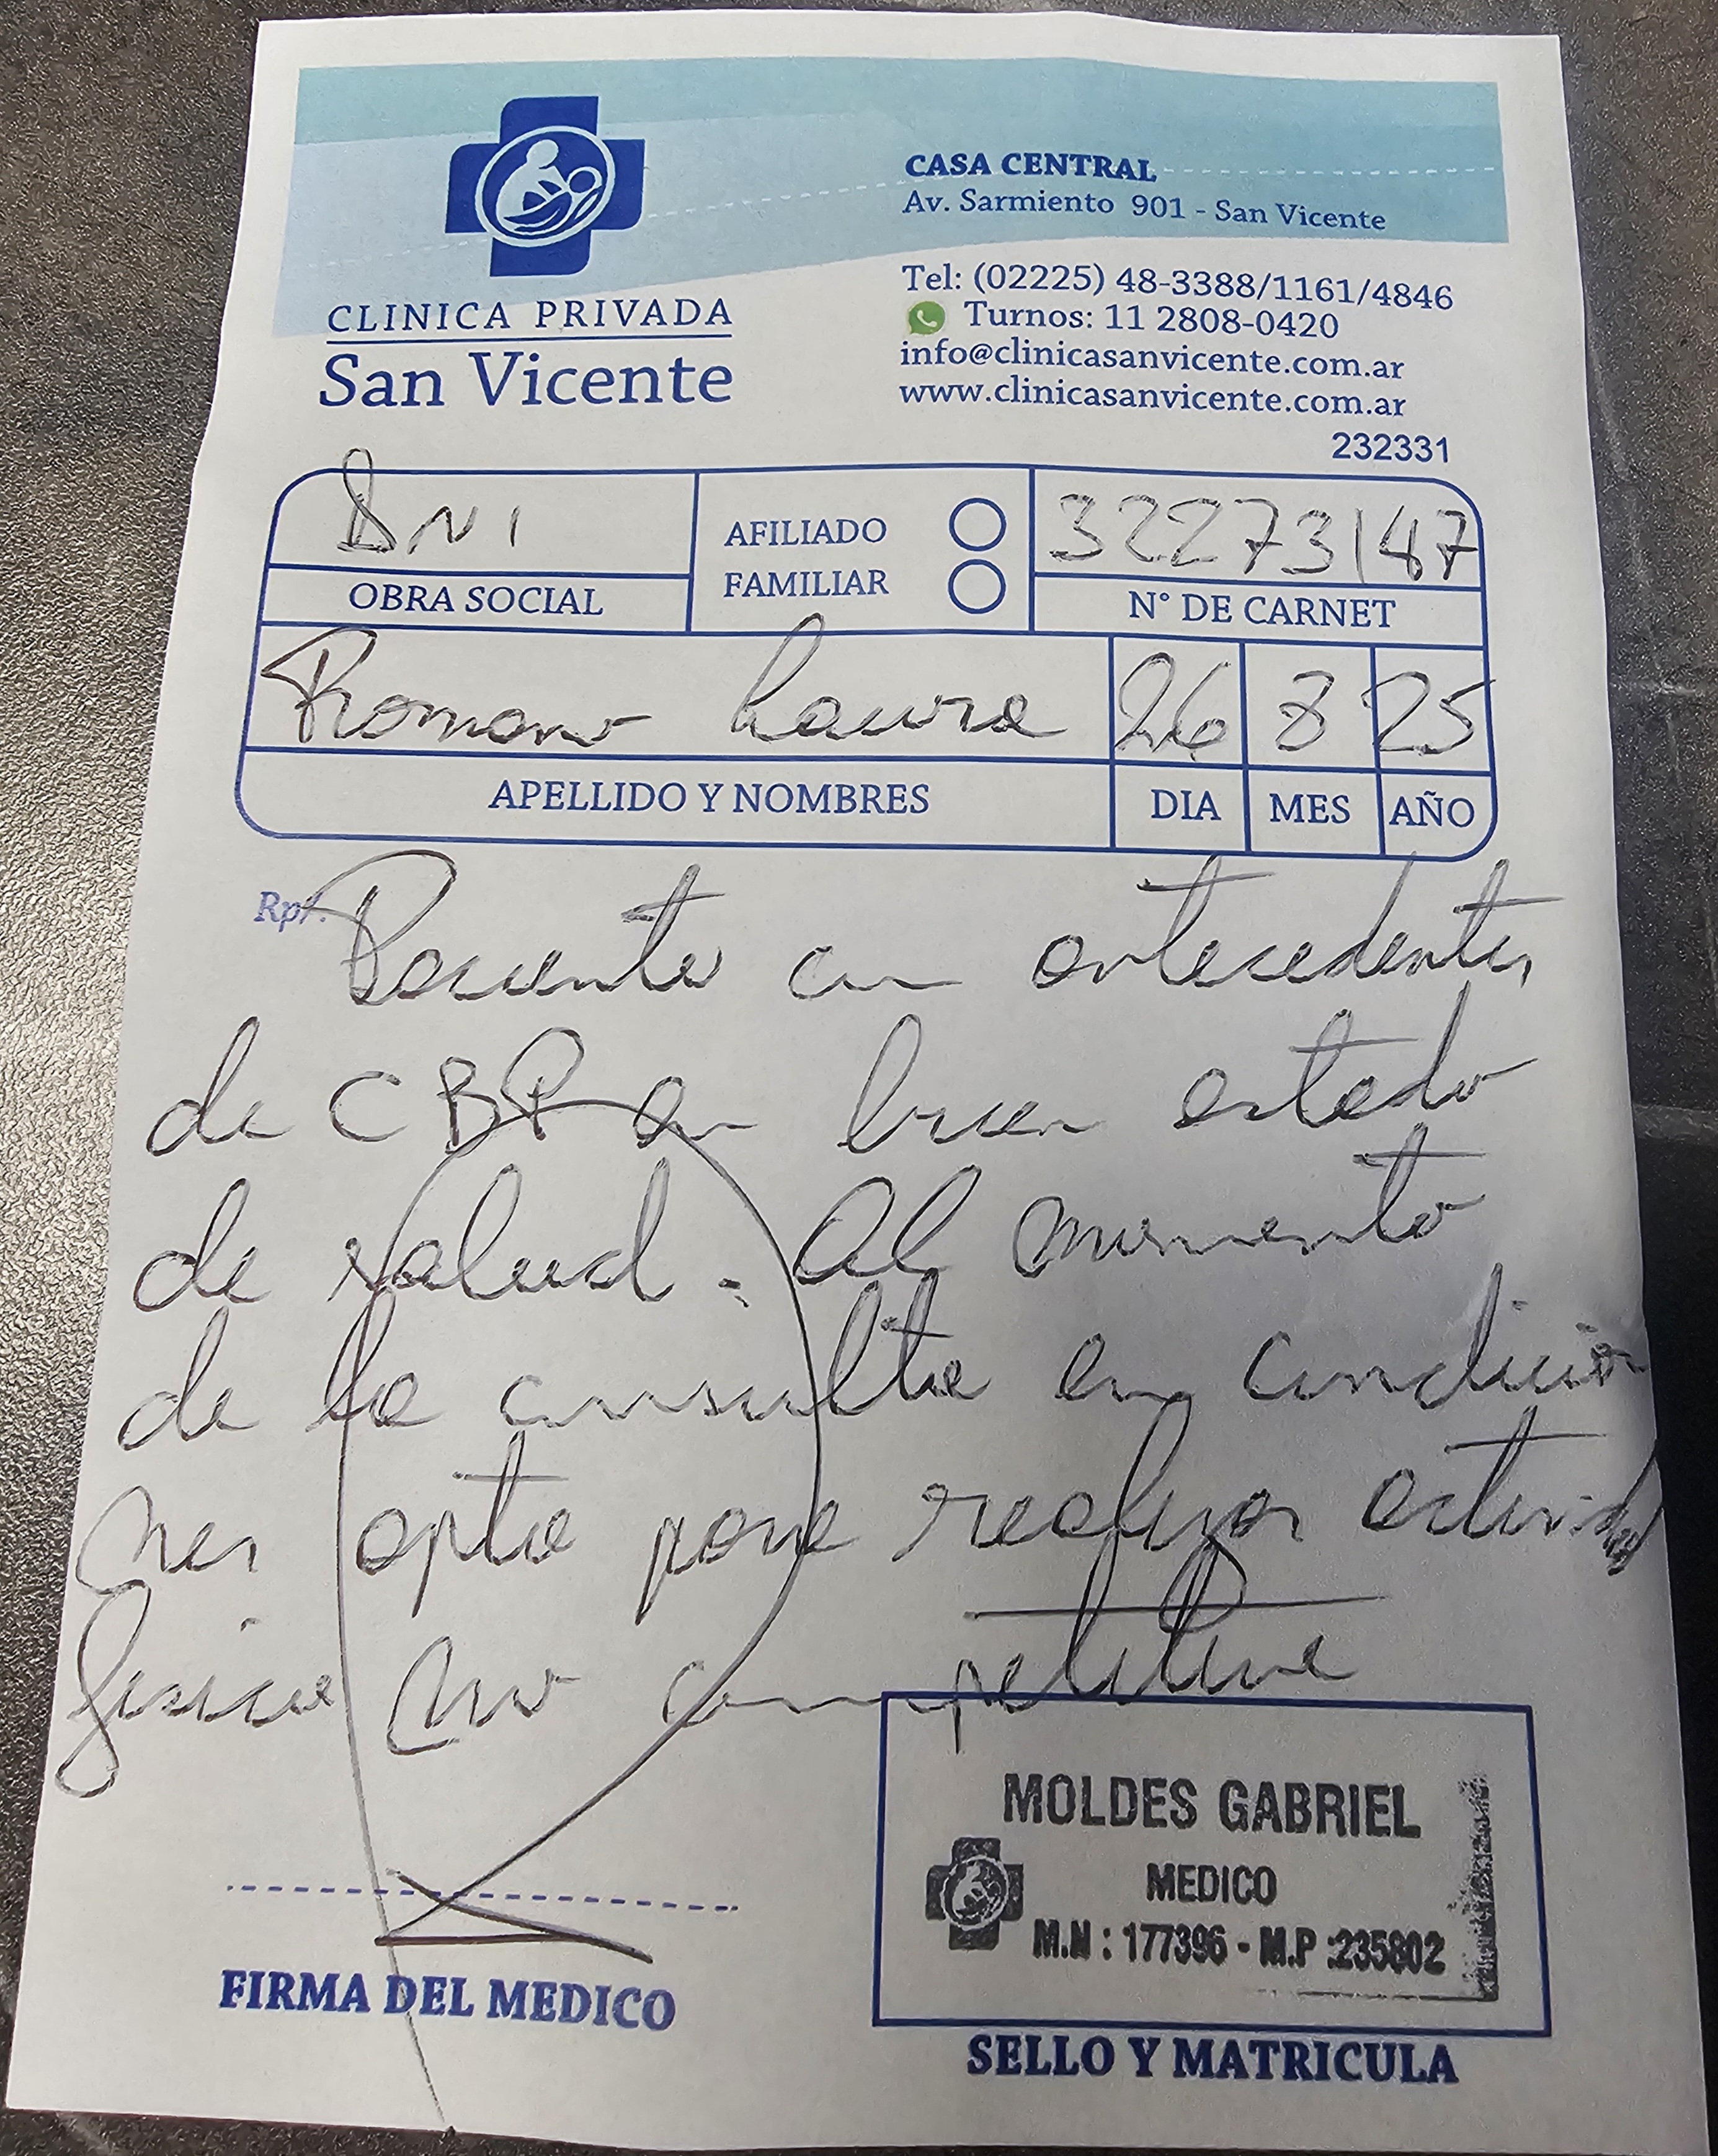 CASA CENTRAL
Av. Sarmiento 901 - San Vicente
CLINICA PRIVADA
San Vicente
Tel: (02225) 48-3388/1161/4846
Turnos: 11 2808-0420
info@clinicasanvicente.com.ar
www.clinicasanvicente.com.ar
232331
DNI
OBRA SOCIAL
AFILIADO
FAMILIAR
32273147
N° DE CARNET
Romano Laura
APELLIDO Y NOMBRES
26 8 25
DIA MES AÑO
Rp/.
Paciente con antecedentes
de CBP en buen estado
de salud. Al momento
de la consulta en condicio
nes apta para realizar actividad
fisica no competitiva
MOLDES GABRIEL
MEDICO
M.N : 177396 - M.P :235802
FIRMA DEL MEDICO
SELLO Y MATRICULA